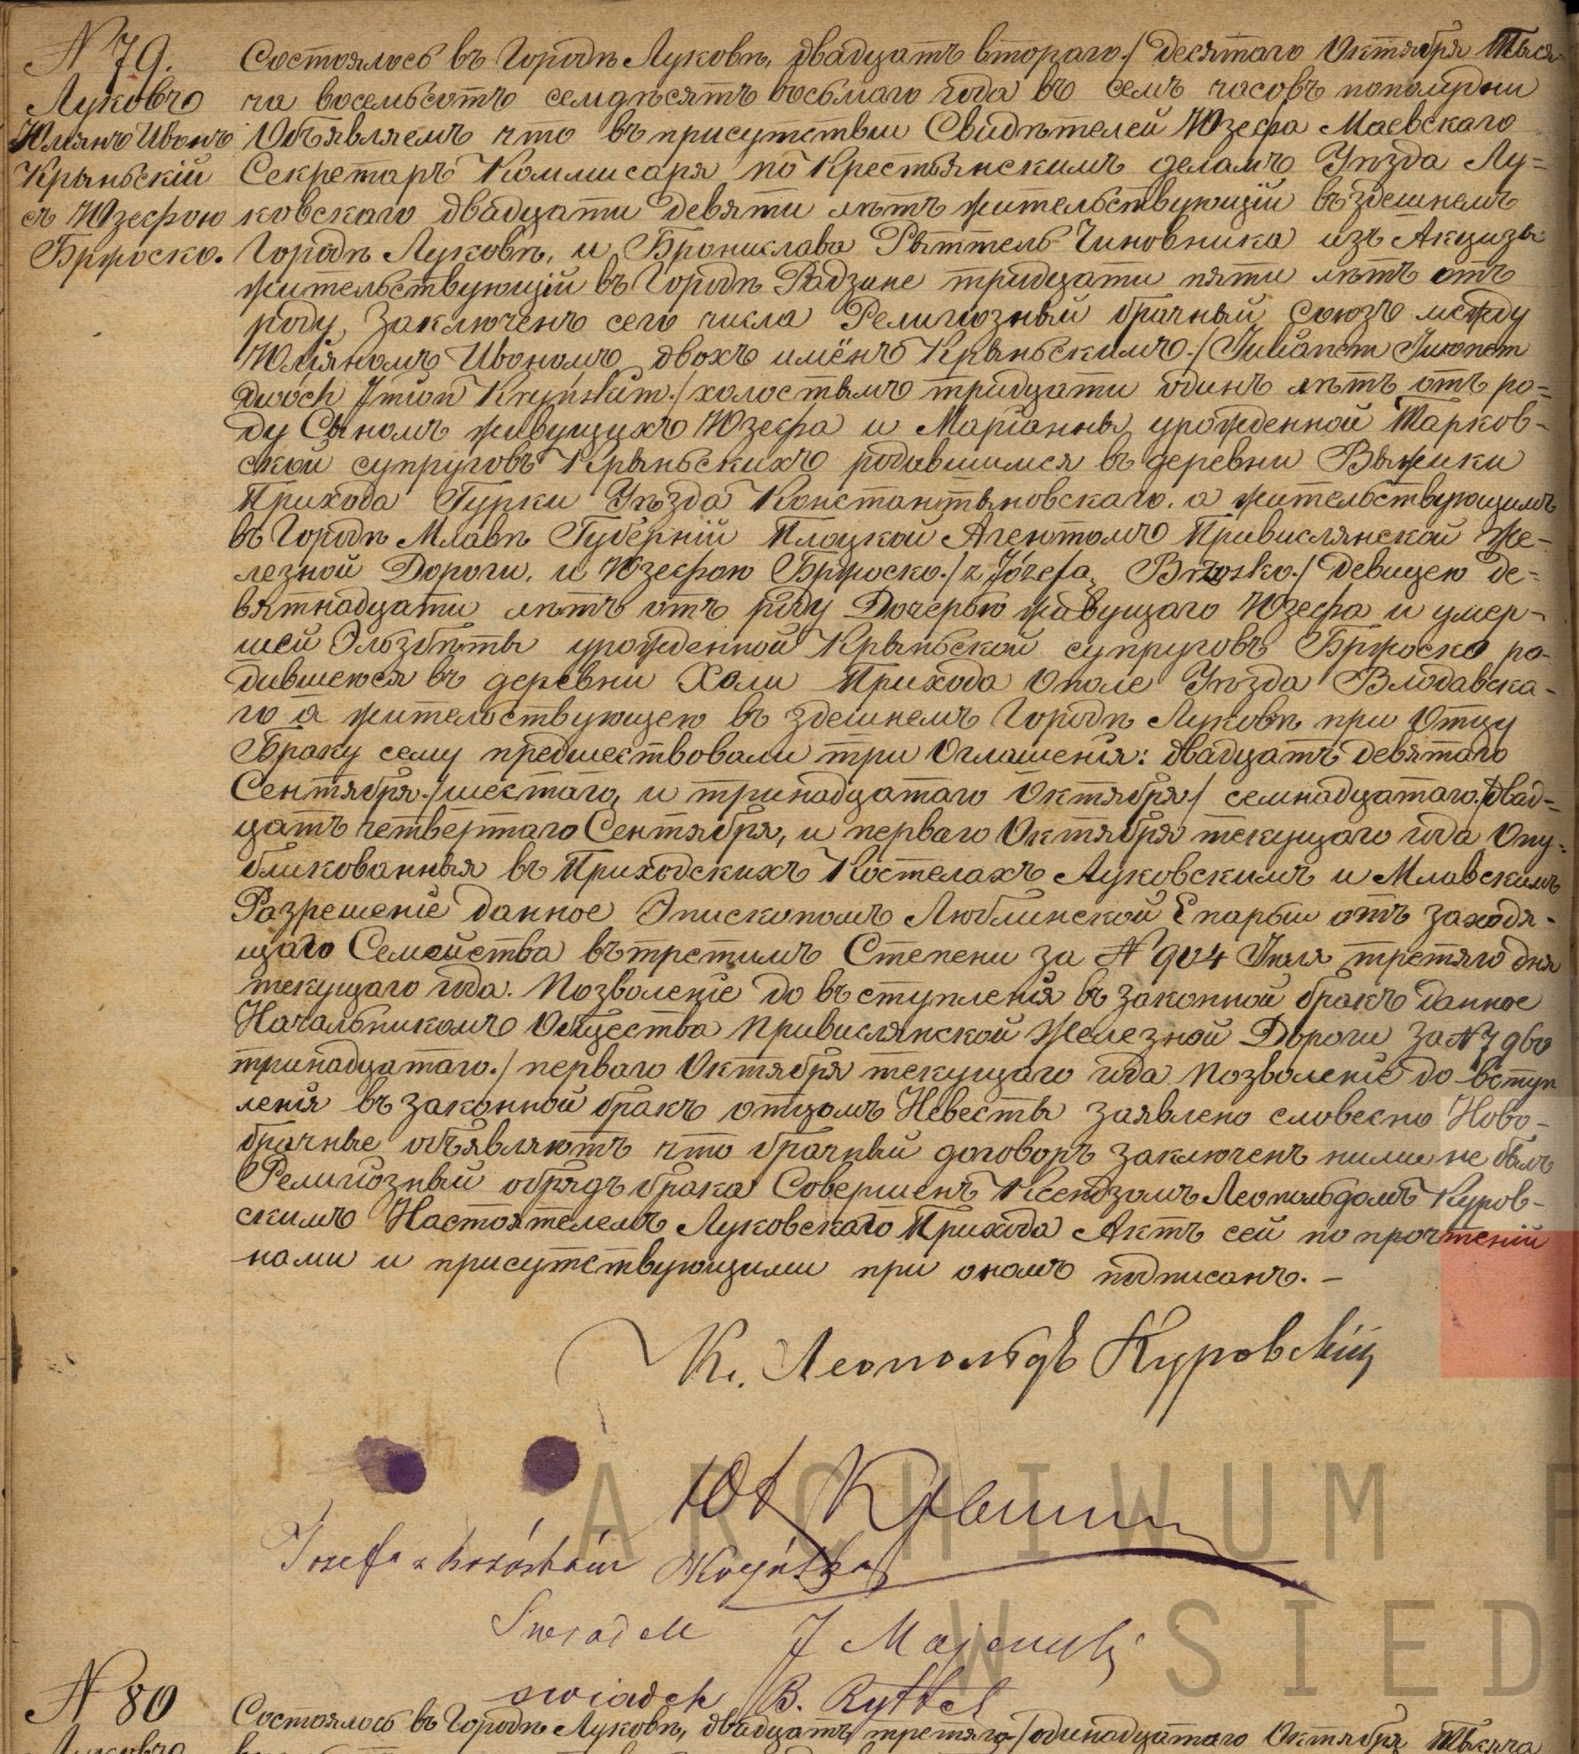 N 79.
Луковъ
Юлянъ Ивонъ
Крыньскій
съ Юзефою
Бржоско.
Состоялось въ Городѣ Луковѣ, двадцать втораго / десятаго Октября Тыся-
ча восемьсотъ семдѣсятъ восьмаго года въ семъ часовъ пополудни
Объявляемъ что въ присутствіи Свидѣтелей Юзефа Маевскаго
Секретаръ Коммисаря по Крестьянскимъ деламъ Уѣзда Лу=
ковскаго двадцати девяти лѣтъ жительствующій въ здешнемъ
Городѣ Луковѣ, и Брониславa Рыттель Чиновника изъ Акцизы
жительствующій въ Городѣ Радзине тридцати пяти лѣтъ отъ
роду, Заключенъ сего числа Религіозный брачный союзъ между
Юліяномъ Ивономъ двохъ имёнъ Крыньскимъ / Julianem Iwonem
dwoch Imion Kryńskim / холостымъ тридцати одинъ лѣтъ отъ ро=
ду Сыномъ живущихъ Юзефа и Маріанны урожденной Тарков-
ской супруговъ Крыньскихъ родившимся въ деревни Выжики
Прихода Гурки Уѣзда Константыновскаго, а жительствующимъ
въ Городѣ Млавѣ Губерній Плоцкой Агентомъ Привислянской Же-
лезной Дороги, и Юзефою Бржоско / z Józefą Brzosko / девицею де=
вятнадцати лѣтъ отъ роду Дочерью живущаго Юзефа и умер-
шей Эльзбѣты урожденной Крыньской супруговъ Бржоско ро-
дившеюся въ деревни Холи Прихода Ополе Уѣзда Влодавска-
го а жительствующею въ здешнемъ Городѣ Луковѣ при Отцу
Браку сему предшествовали три Оглашенія: двадцать девятаго
Сентября / шестаго, и тринадцатаго Октября / семнадцатаго / двад-
цать четвертаго Сентября, и перваго Октября текущаго года Опу-
бликованныя въ Приходскихъ Костелахъ Луковскимъ и Млавскимъ
Разрешеніе данное Эпископомъ Люблинской Епархіи отъ заходя-
щаго Семейства въ третимъ Степени за N 904 Іюля третяго дня
текущаго года. Позволеніе до въступленія въ законной бракъ данное
Начальникомъ Общества Привислянской Железной Дороги за N 7960
тринадцатаго / перваго Октября текущаго года Позволеніе до вступ
ленія въ законной бракъ отцомъ Невесты заявлено словесно Ново-
брачные объявляютъ что брачный договоръ заключенъ ними не былъ
Религіозный обрядъ брака Совершенъ Ксендзомъ Леопольдомъ Куров-
скимъ Настоятелемъ Луковскаго Прихода Актъ сей по прочтеніи
нами и присутствующими при ономъ подписанъ. —
Кс. Леопольдъ Куровскій
Józefa z Brzosków Kryńska
Swiadek J Majewski
swiadek B. Ryttel
ARCHIWUM P
W SIED
N 80
Состоялось въ Городѣ Луковѣ, двадцать третяго / одинадцатаго Октября Тысяча
Луковъ